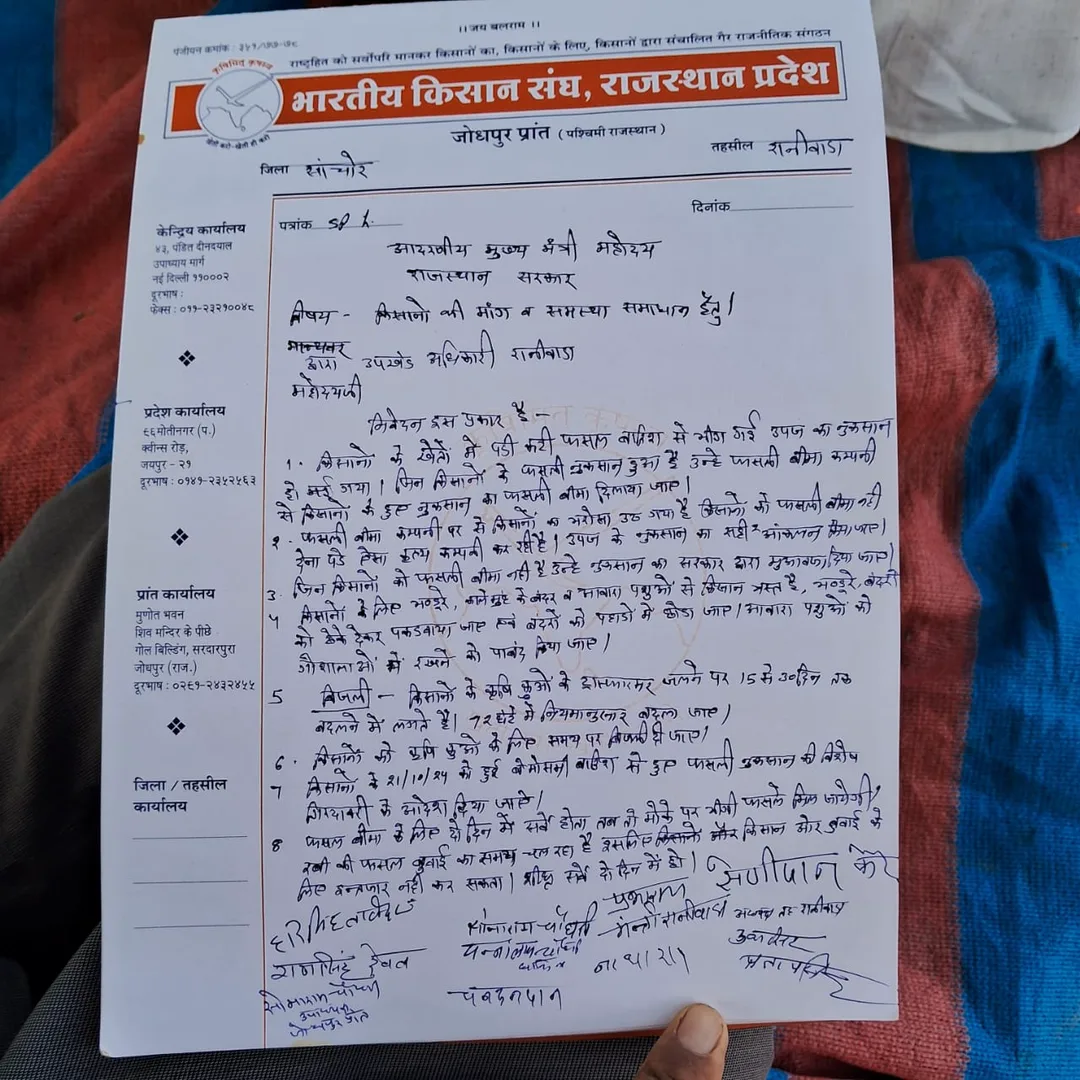 ।। जय बलराम ।।
पंजीयन क्रमांक : ३५१/७७-७८
राष्ट्रहित को सर्वोपरि मानकर किसानों का, किसानों के लिए, किसानों द्वारा संचालित गैर राजनीतिक संगठन
भारतीय किसान संघ, राजस्थान प्रदेश
जोधपुर प्रांत (पश्चिमी राजस्थान)
जिला सांचोर
तहसील रानीवाडा
पत्रांक SPL.
दिनांक
केन्द्रिय कार्यालय
४३, पंडित दीनदयाल
उपाध्याय मार्ग
नई दिल्ली ११०००२
दूरभाष :
फेक्स : ०११-२३२१००४८
प्रदेश कार्यालय
९६मोतीनगर (प.)
क्वीन्स रोड़,
जयपुर - २१
दूरभाष : ०१४१-२३५२५६३
प्रांत कार्यालय
मुणोत भवन
शिव मन्दिर के पीछे
गोल बिल्डिंग, सरदारपुरा
जोधपुर (राज.)
दूरभाष : ०२९१-२४३२४५५
जिला / तहसील
कार्यालय
आदरणीय मुख्य मंत्री महोदय
राजस्थान सरकार
विषय - किसानो की मांग व समस्था समाधान हेतु।
मान्यवर
द्वारा उपखंड अधिकारी रानीवाडा
महोदयजी
निवेदन इस प्रकार है -
१. किसानो के खेतों में पडी कटी फसल बारिश से भीग गई उपज का नुकसान
हो गया। जिन किसानों के फसली नुकसान हुआ है उन्हे फसली बीमा कम्पनी
से किसानो के हुए नुकसान का फसली बीमा दिलाया जाए।
२. फसली बीमा कम्पनी पर से किसानों का भरोसा उठ गया है किसानों को फसली बीमा नही
देना पडे ऐसा कृत्य कम्पनी कर रही है। उपज के नुकसान का सही२ आंकलन किया जाए।
3. जिन किसानों को फसली बीमा नही है उन्हे नुकसान का सरकार द्वारा मुआवजा दिया जाए।
४ किसानों के लिए भण्डूरे, काले मुह के बंदर व आवारा पशुओं से किसान त्रस्त है, भण्डूरे, बंदरो
को ठेके देकर पकडवाया जाए एवं बंदरों को पहाडो में छोडा जाए। आवारा पशुओं को
गौशालाओं में रखने को पाबंद किया जाए।
5 बिजली - किसानो के कृषि कुओं के ट्रांसफारमर जलने पर 15 से 30 दिन तक
बदलने में लगते है। 72 घंटे में नियमानुसार बदला जाए।
6. किसानों को कृषि कुओं के लिए समय पर बिजली दी जाए।
7 किसानों के 21/10/24 को हुई बेमोसमी बारिश से हुए फसली नुकसान की विशेष
गिरदावरी के आदेश दिया जाऐ।
8 फसल बीमा के लिए दो दिन में सर्वे होता तब तो मौके पर भीगी फसले मिल जायेगी,
रबी की फसल बुवाई का समय चल रहा है इसलिए किसानो और किसान ओर बुवाई के
लिए इन्तजार नही कर सकता। शीघ्र सर्वे दो दिन में हो।
सोनाराम चौधरी
मन्त्री रानीवाडा
अध्यक्ष तह रानीवाडा
नाथाराम
चन्दनदान
सोमाराम चौधरी
उपाध्यक्ष
जोधपुर प्रांत